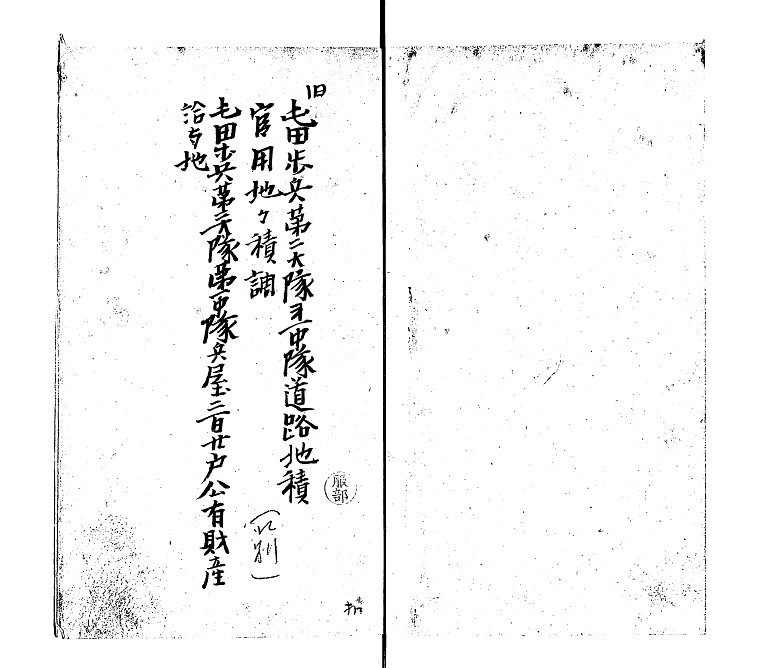 旧
屯田歩兵第二大隊第一中隊道路地積
官用地々積調
屯田歩兵第二大隊第一中隊兵屋二百廿戸公有財産
給与地
服部